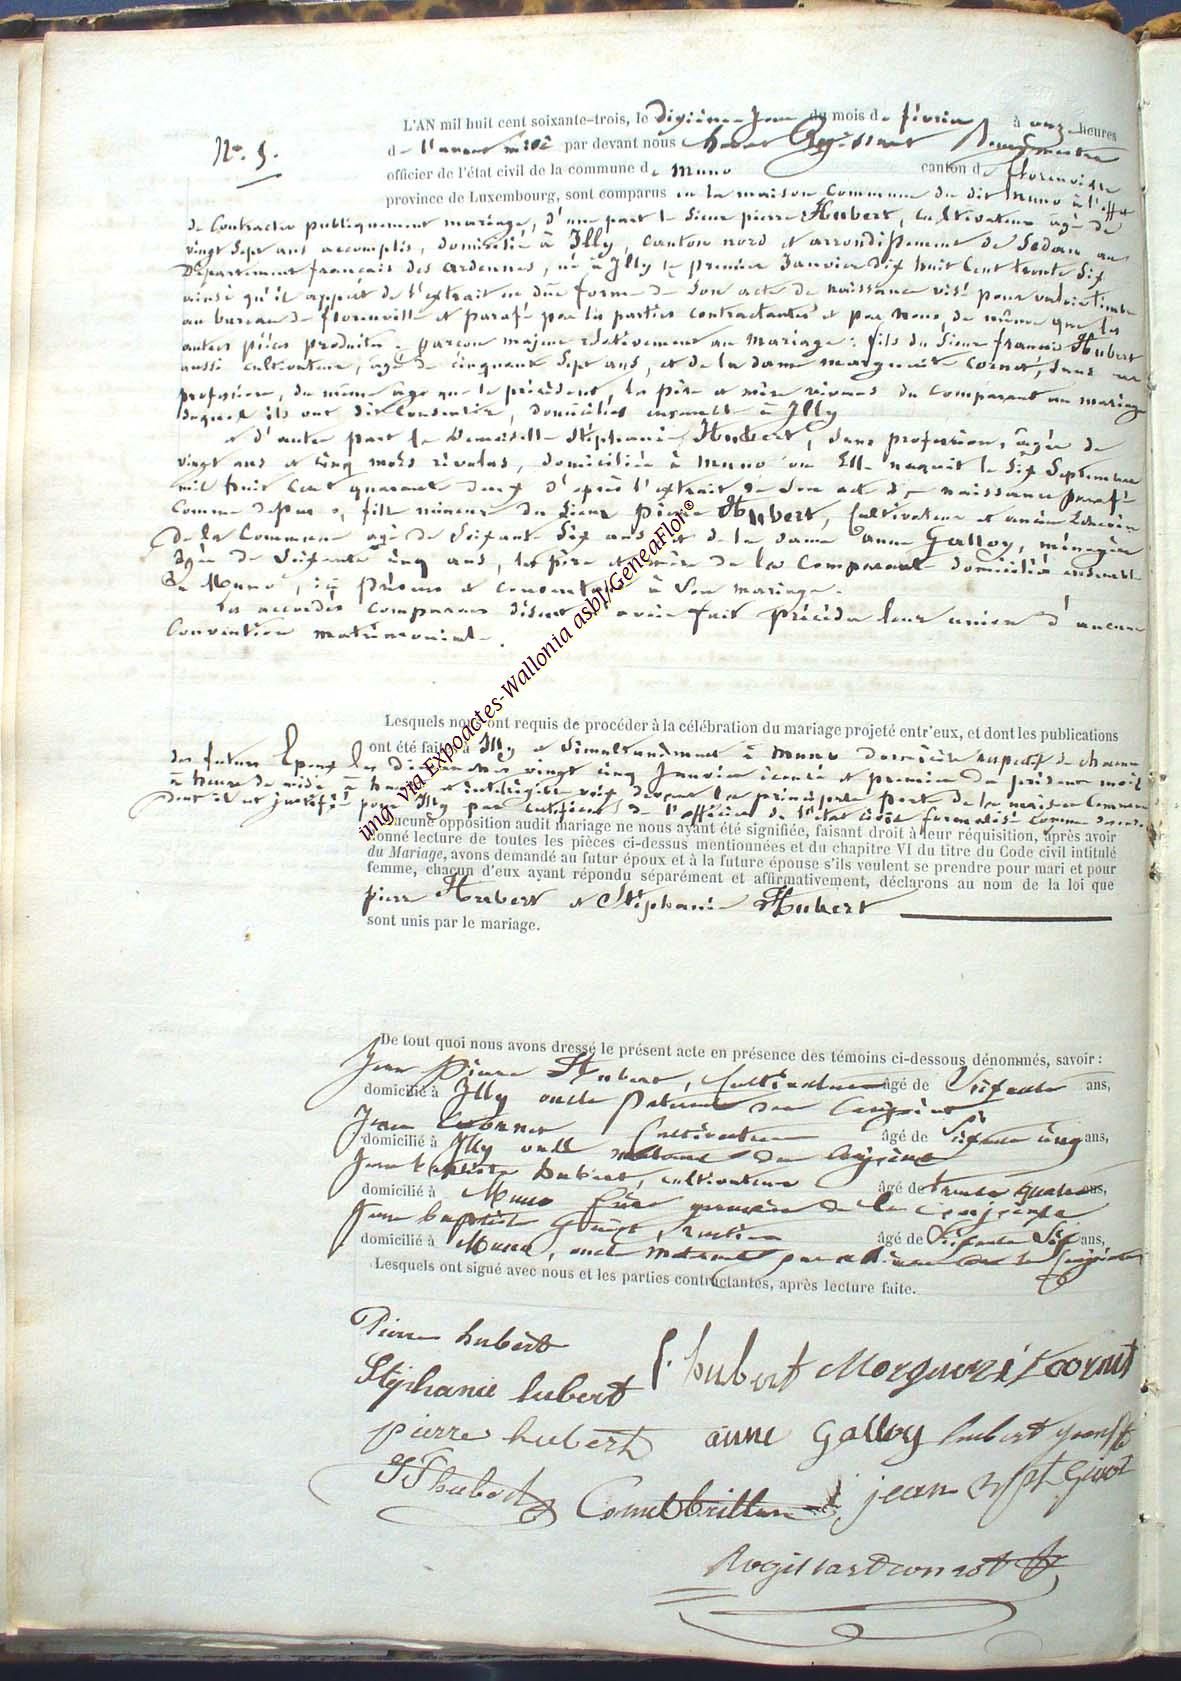 N° 5.
L'AN mil huit cent soixante-trois, le dixième jour du mois de février à onze heures
de l'avant midi par devant nous Bourgmestre
officier de l'état civil de la commune de Muno canton de florenville
province de Luxembourg, sont comparus en la maison Commune du dit Muno à l'effet
de Contracter publiquement mariage, d'une part le Sieur pierre Hubert, Cultivateur âgé de
vingt Sept ans accomplis, domicilié à Illy, canton nord et arrondissement de Sedan au
Département français des ardennes, né à Illy le premier Janvier dix huit Cent trente Six
ainsi qu'il appert de l'extrait en due forme de Son acte de naissance visé pour valoir timbre
au bureau de florenville et parafé par les parties contractantes et par nous, de même que les
autres pièces produites. garçon majeur relativement au mariage : fils du Sieur françois Hubert
aussi Cultivateur, âgé de Cinquante Sept ans, et de la dame marguerite Cornet, Sans
profession, du même âge que le précédent, les père et mère vivans du Comparant au mariage
duquel ils ont dit Consentir, domiciliés ensemble à Illy
et d'autre part la Demoiselle Stéphanie Hubert, Sans profession, âgée de
vingt ans et Cinq mois révolus, domiciliée à Muno où Elle naquit le Six Septembre
mil huit Cent quarante deux d'après l'extrait de Son acte de naissance parafé
Comme dessus, fille mineure du Sieur Pierre Hubert, Cultivateur et ancien Echevin
de la Commune âgé de Soixante Six ans et de la dame anne Galloy, ménagère
âgée de Soixante Cinq ans, les père et mère de la Comparante domiciliés ensemble
à Muno, ici présens et consentans à Son mariage.
Les accordés Comparans disent avoir fait précéder leur union d'aucune
Convention matrimoniale.
Lesquels nous ont requis de procéder à la célébration du mariage projeté entr'eux, et dont les publications
ont été faites à Illy et Simultanément à Muno domicile respectif de chacun
des futurs Epoux les Dimanches vingt Cinq Janvier écoulé et premier du présent mois
à heure de midi à haute et intelligible voix devant la principale porte de la maison Commune
dont il est justifié pour Illy par certificat de l'officier de l'état civil formalisé Comme dessus
Aucune opposition audit mariage ne nous ayant été signifiée, faisant droit à leur réquisition, après avoir
donné lecture de toutes les pièces ci-dessus mentionnées et du chapitre VI du titre du Code civil intitulé
du Mariage, avons demandé au futur époux et à la future épouse s'ils veulent se prendre pour mari et pour
femme, chacun d'eux ayant répondu séparément et affirmativement, déclarons au nom de la loi que
pierre Hubert et Stéphanie Hubert
sont unis par le mariage.
De tout quoi nous avons dressé le présent acte en présence des témoins ci-dessous dénommés, savoir :
Jean Pierre Hubert, Cultivateur âgé de Soixante ans,
domicilié à Illy oncle paternel du Conjoint
Jean Cornet Cultivateur âgé de Soixante Cinq ans,
domicilié à Illy oncle maternel du Conjoint
Jean baptiste hubert, cultivateur âgé de trente quatre ans,
domicilié à Muno frère germain de la Conjointe
Jean baptiste rentier âgé de Soixante Six ans,
domicilié à Muno, oncle maternel par alliance de la Conjointe
Lesquels ont signé avec nous et les parties contractantes, après lecture faite.
Pierre hubert
f. hubert Marguerite Cornet
Stéphanie hubert
pierre hubert anne Galloy hubert
hubert Cornet jean Bpt
img via Expoactes-Wallonia asbl/GeneaFlor®